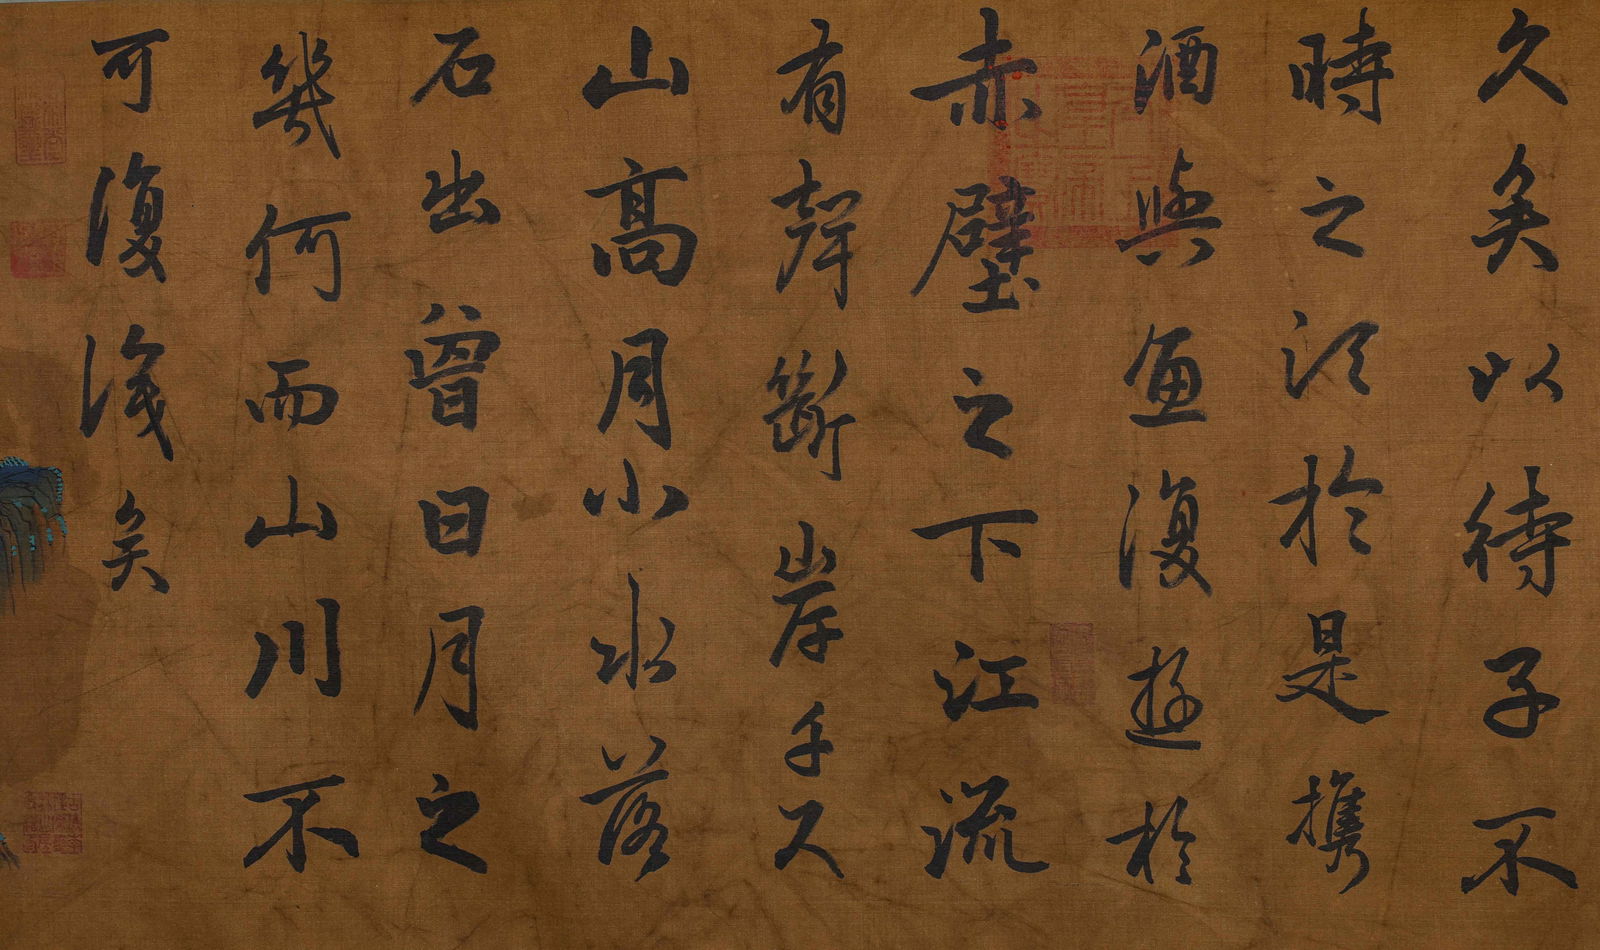 久矣以待子不
時之須於是攜
酒與魚復遊於
赤壁之下江流
有聲斷岸千尺
山高月小水落
石出曾日月之
幾何而山川不
可復識矣